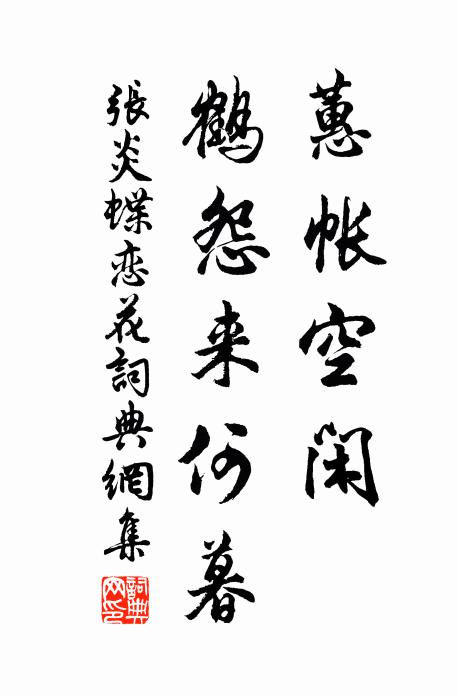 蕙帐空闲
鹤怨来何暮
張炎蝶恋花詞典網集
詞典网印